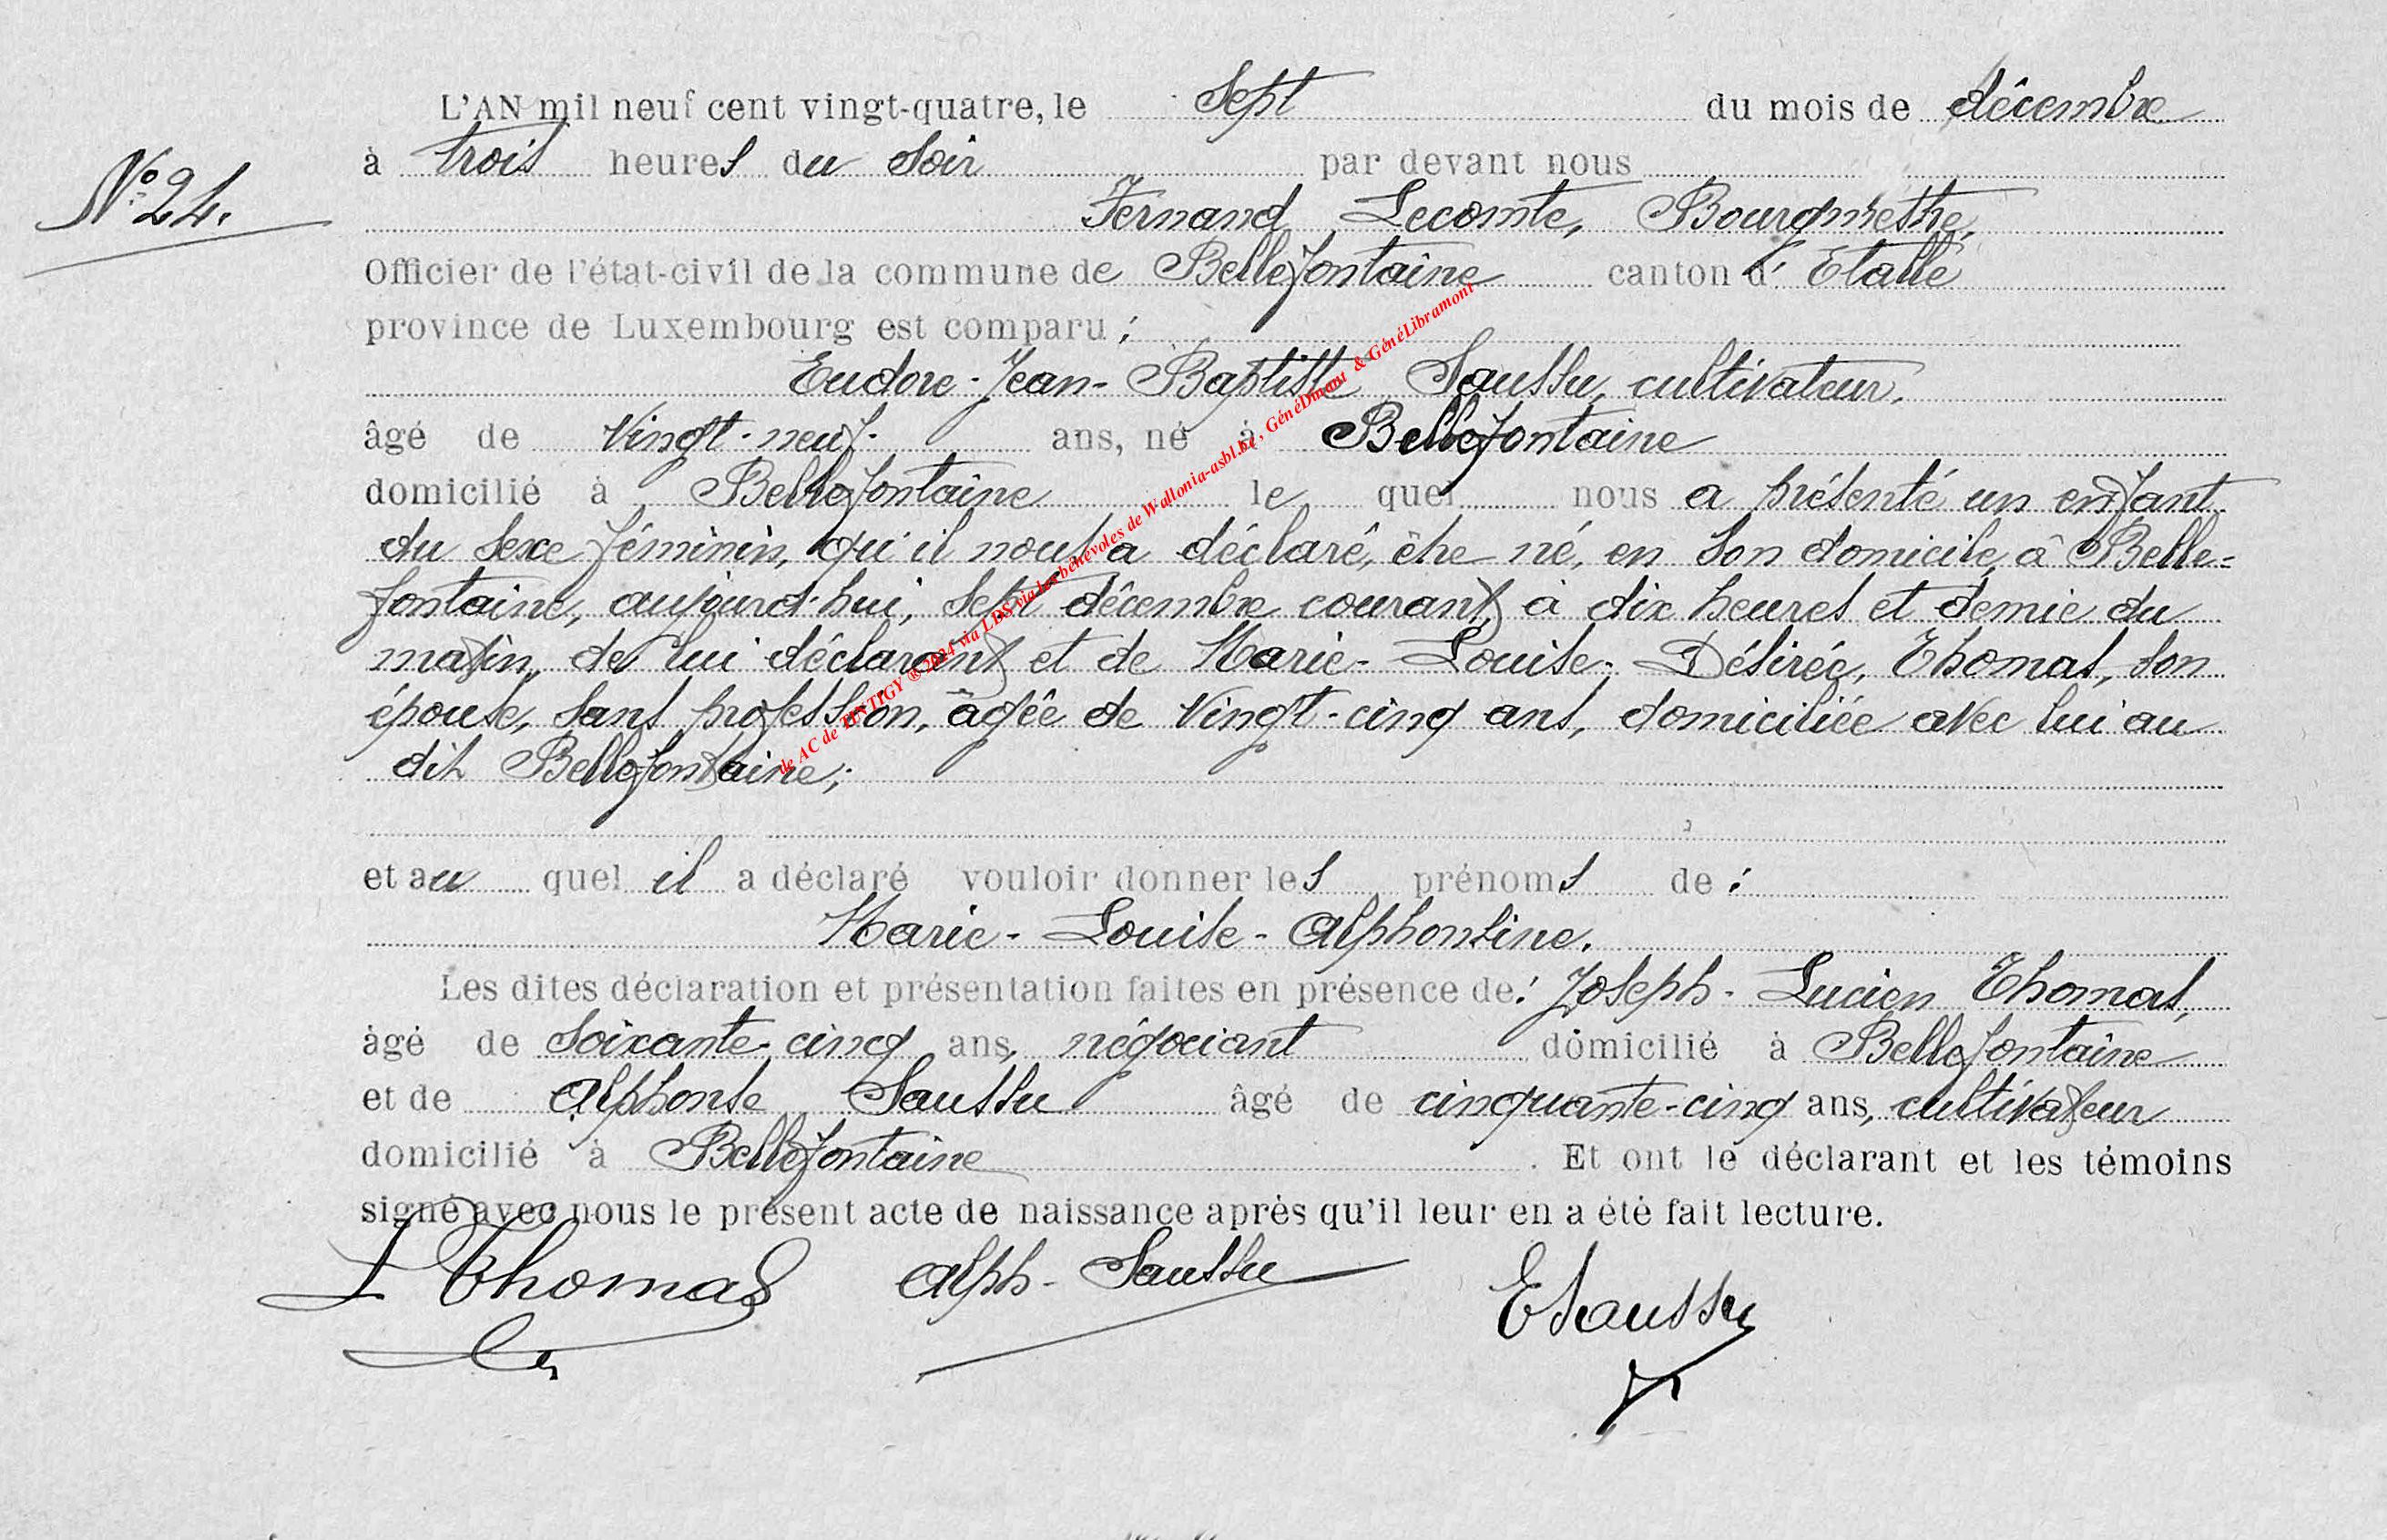 L'AN mil neuf cent vingt-quatre, le sept du mois de décembre
à trois heures du soir par devant nous
N° 24.
Fernand Lecomte, Bourgmestre,
Officier de l'état-civil de la commune de Bellefontaine canton d' Etalle
province de Luxembourg est comparu :
Eudore-Jean-Baptiste Saussu, cultivateur,
âgé de vingt-neuf ans, né à Bellefontaine
domicilié à Bellefontaine le quel nous a présenté un enfant
du sexe féminin, qu'il nous a déclaré, être né, en son domicile, à Belle-
fontaine, aujourd'hui, sept décembre courant, à dix heures et demie du
matin, de lui déclarant et de Marie-Louise-Désirée, Thomas, son
épouse, sans profession, âgée de vingt-cinq ans, domiciliée avec lui au
dit Bellefontaine;
et au quel il a déclaré vouloir donner les prénoms de :
Marie-Louise-Alphonsine.
Les dites déclaration et présentation faites en présence de : Joseph-Lucien Thomas,
âgé de soixante-cinq ans, négociant domicilié à Bellefontaine
et de Alphonse Saussu âgé de cinquante-cinq ans, cultivateur
domicilié à Bellefontaine. Et ont le déclarant et les témoins
signé avec nous le présent acte de naissance après qu'il leur en a été fait lecture.
L Thomas Alph-Saussu ESaussu
de AC de TINTIGY ® 2024 via LDS via les bénévoles de Wallonia-asbl.be, GénéDinant & GénéLibramont